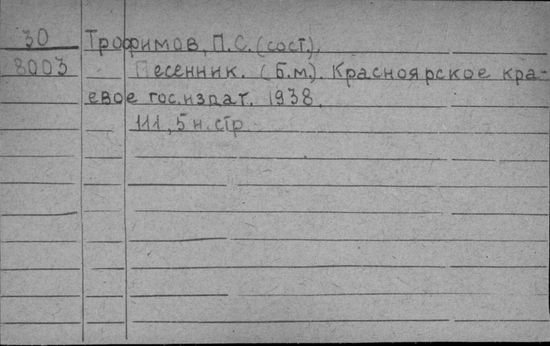 30 Трофимов, П.С. (сост.),
8003 Песенник. (Б.м). Красноярское кра-
евое гос.издат. 1938.
111, 5 н. стр